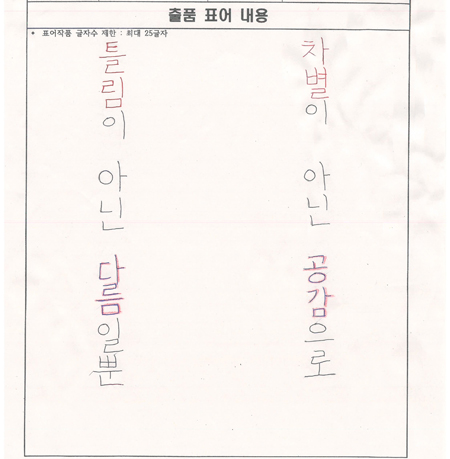 출품 표어 내용
* 표어작품 글자수 제한 : 최대 25글자
틀림이 아닌 다름일뿐
차별이 아닌 공감으로